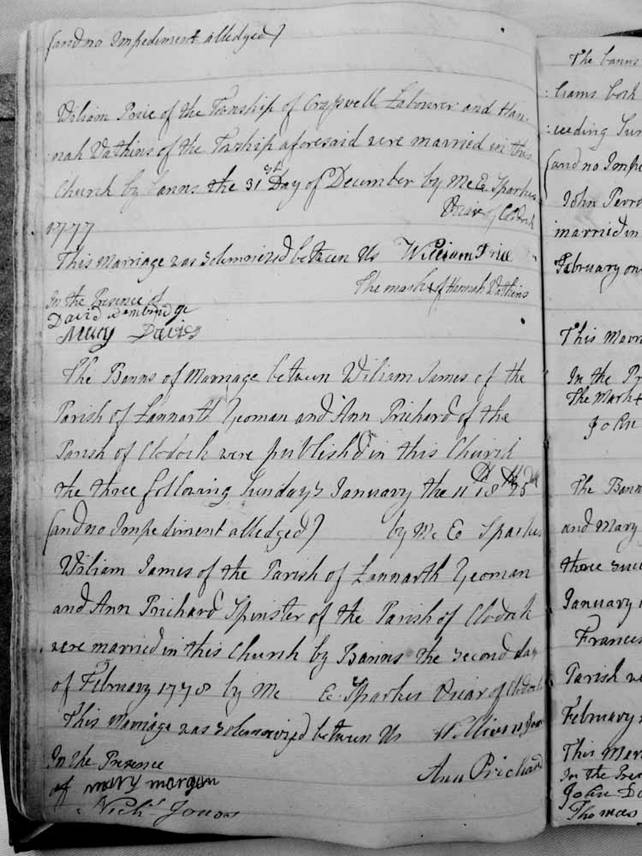 (and no Impediment alledged)
William Price of the Township of Craswell Labourer and Han-
nah Watkins of the Township aforesaid were married in this
Church by Banns the 31st Day of December by Me E Sparkes
Vicar of Clodock
1777
This Marriage was solemnized between Us William Price
The mark of Hannah Watkins
In the Presence of
David
Mary Davies
The Banns of Marriage between William James of the
Parish of Lannarth Yeoman and Ann Prichard of the
Parish of Clodock were published in this Church
the three following Sundays January the 11th 18th 25th
(and no Impediment alledged) by Me E Sparkes
William James of the Parish of Lannarth Yeoman
and Ann Prichard Spinster of the Parish of Clodock
were married in this Church by Banns the second day
of February 1778 by Me E. Sparkes Vicar of Clodock
This Marriage was solemnized between Us William James
Ann Prichard
In the Presence
of mary morgan
Nich Jones
The banns
liams both
ceeding Sun
(and no Impe
John
married in
February on
This Marri
In the Pr
The Mark
John
The Bann
and Mary
those suc
January
Frances
Parish we
February
This Mar
In the Pres
John
Thomas